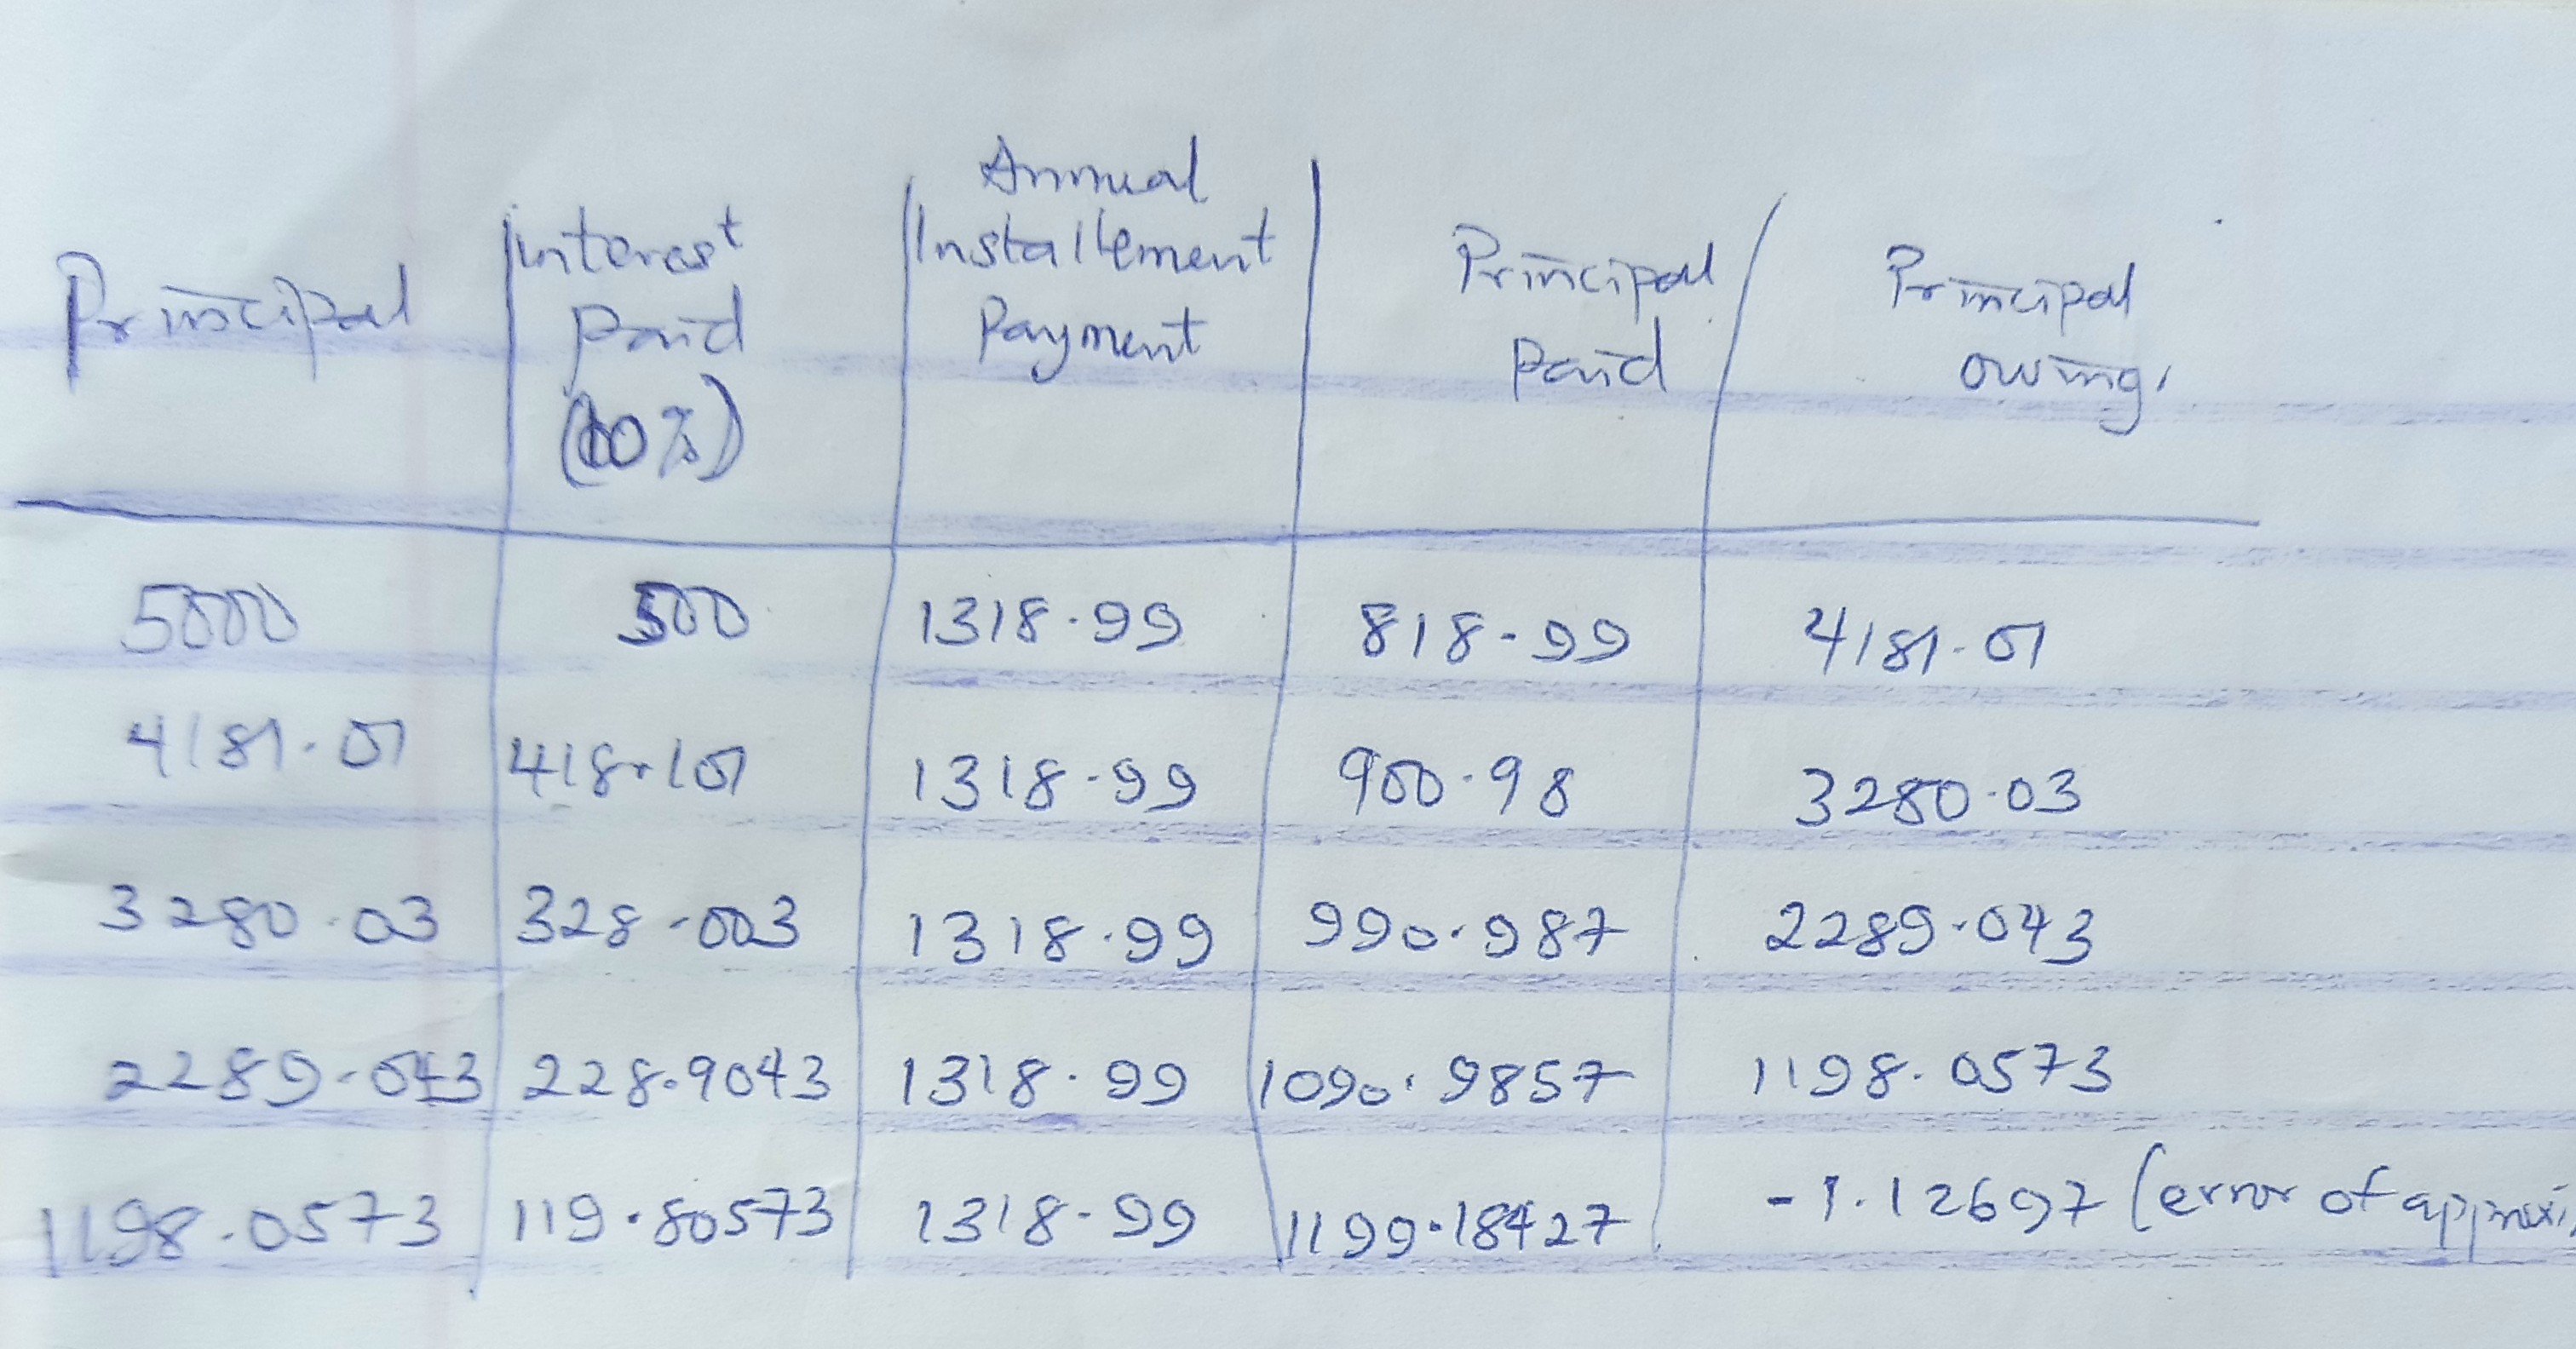 Principal | Interest Paid (10%) | Annual Installement Payment | Principal Paid | Principal owing.
5000 | 500 | 1318.99 | 818.99 | 4181.01
4181.01 | 418.101 | 1318.99 | 900.98 | 3280.03
3280.03 | 328.003 | 1318.99 | 990.987 | 2289.043
2289.043 | 228.9043 | 1318.99 | 1090.9857 | 1198.0573
1198.0573 | 119.80573 | 1318.99 | 1199.18427 | -1.12697 (error of approxi